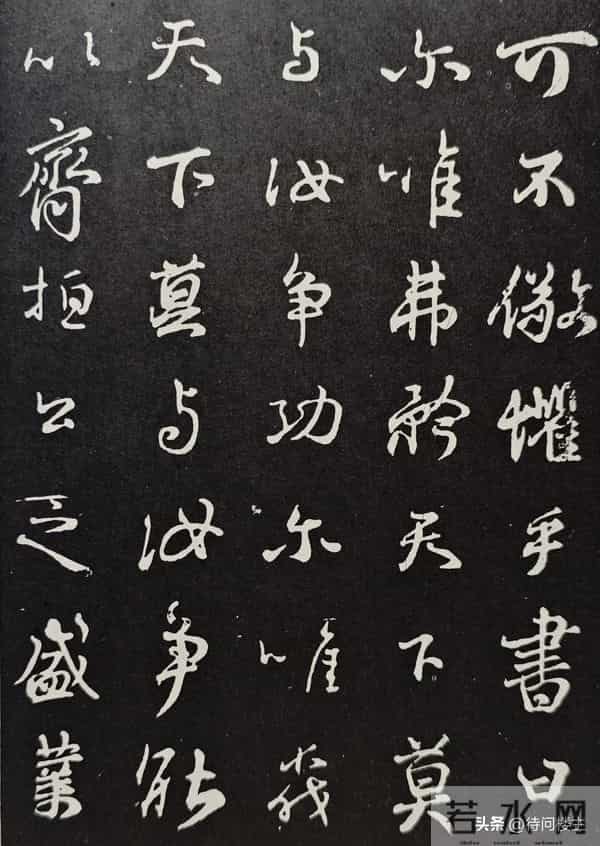 可不儆懼乎書曰
尔唯弗矜天下莫
与汝争功尔唯不伐
天下莫与汝争能
以齊桓公之盛業
若水网
头条 @待问楼主